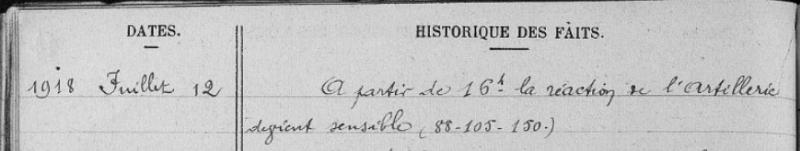 DATES. HISTORIQUE DES FAITS.
1918 Juillet 12 A partir de 16h la réaction de l'artillerie
devient sensible (88-105-150.)